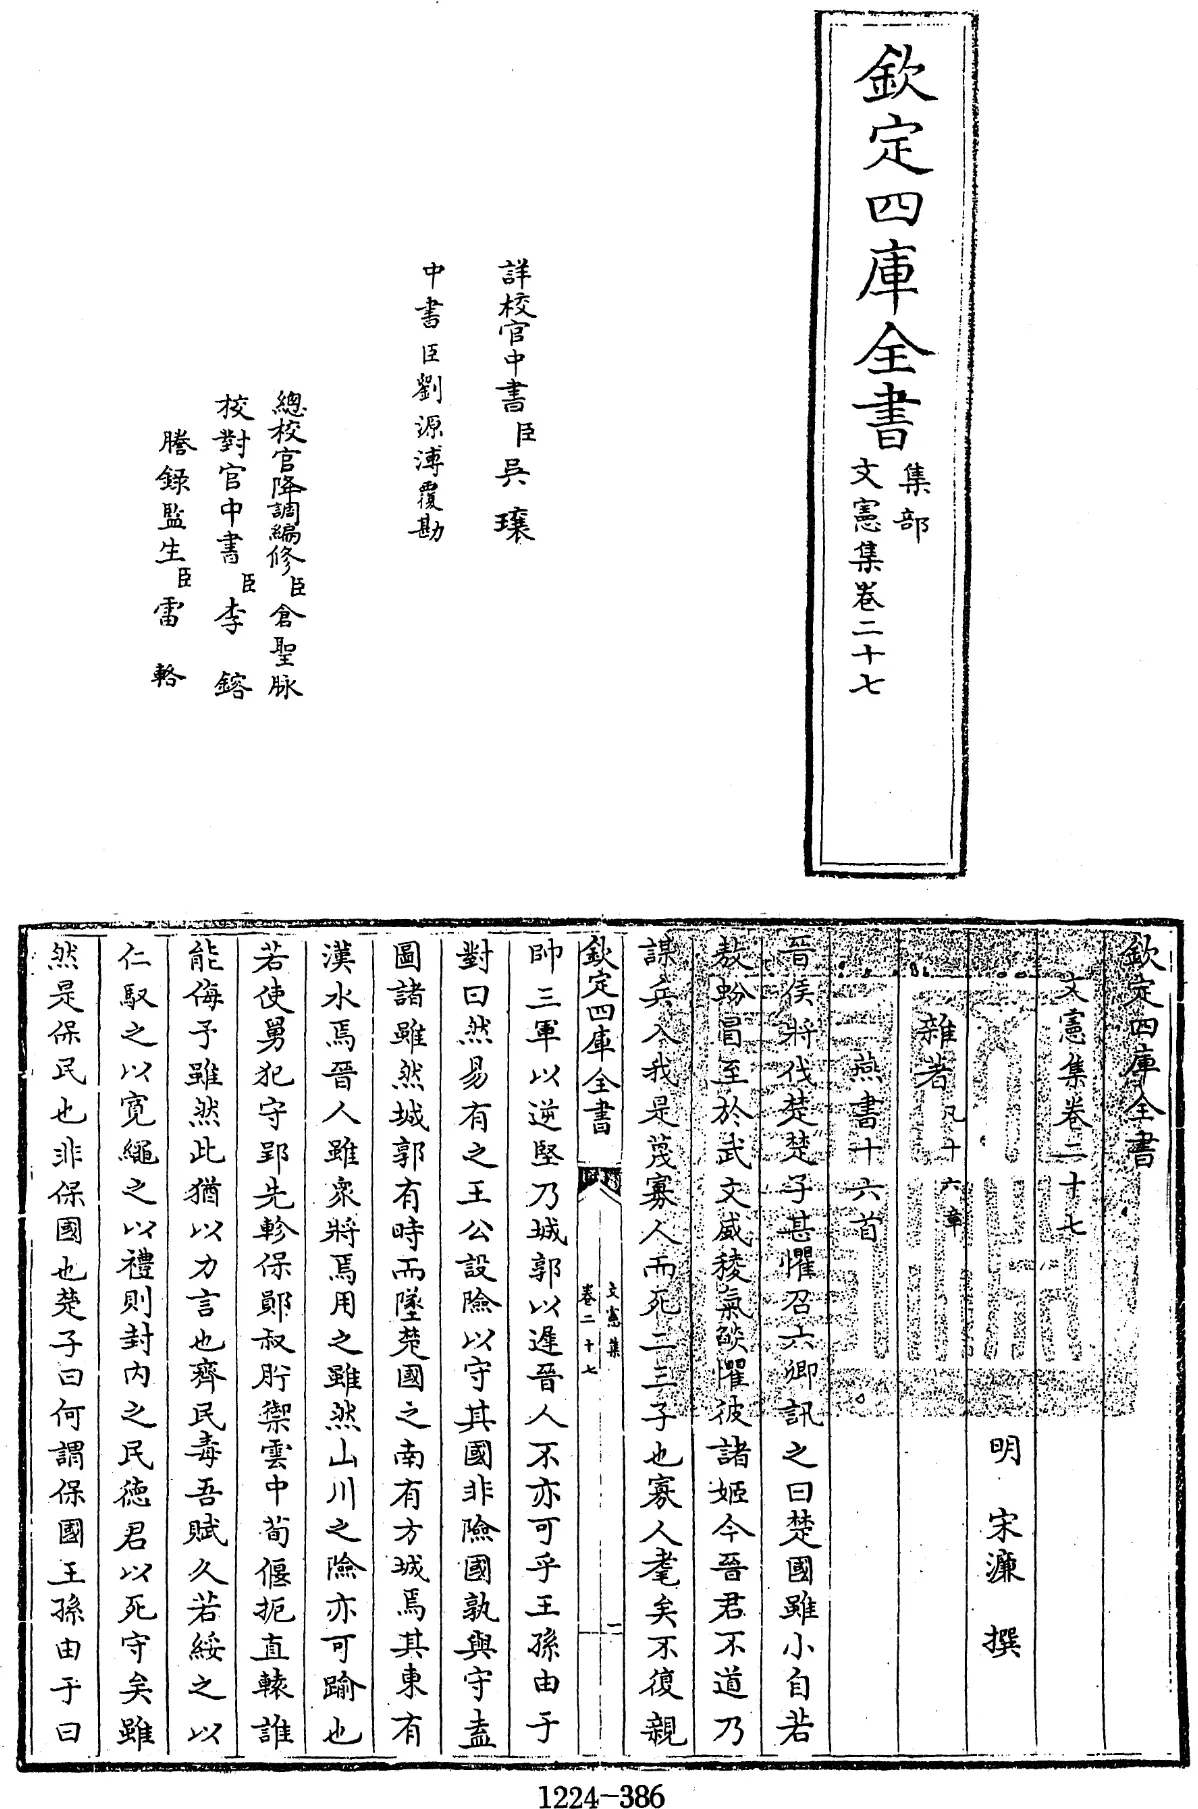 欽定四庫全書
集部
文憲集卷二十七
詳校官中書臣吳瓖
中書臣劉源溥覆勘
總校官降調編修臣倉聖脉
校對官中書臣李鎔
謄錄監生臣雷輅
欽定四庫全書
文憲集卷二十七
明 宋濂 撰
雜著凡十六章
燕書十六首
晉侯將伐楚楚子甚懼召六卿訊之曰楚國雖小自若
敖蚡冒至於武文威稜氣燄懼彼諸姬今晉君不道乃
謀兵入我是蔑寡人而死二三子也寡人耄矣不復親
欽定四庫全書
文憲集
卷二十七
一
帥三軍以逆堅乃城郭以遲晉人不亦可乎王孫由于
對曰然易有之王公設險以守其國非險國孰與守盍
圖諸雖然城郭有時而墜楚國之南有方城焉其東有
漢水焉晉人雖衆將焉用之雖然山川之險亦可踰也
若使舅犯守郢先軫保鄖叔肸禦雲中荀偃扼直轅誰
能侮予雖然此猶以力言也齊民毒吾賦久若綏之以
仁馭之以寬繩之以禮則封內之民德君以死守矣雖
然是保民也非保國也楚子曰何謂保國王孫由于曰
1224-386